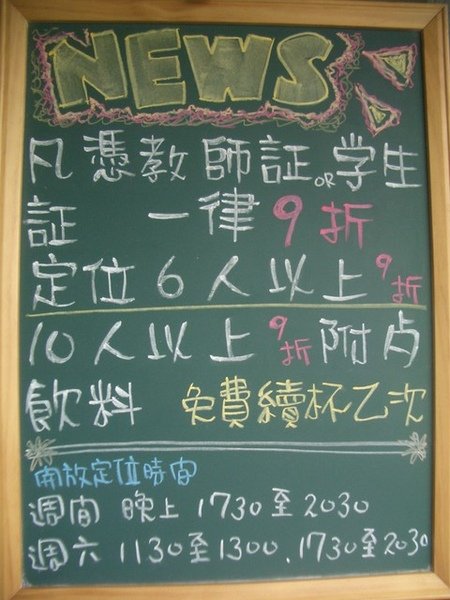 NEWS
凡憑教師証OR学生
証 一律9折
定位6人以上9折
10人以上9折附点
飲料 免費續杯乙次
開放定位時間
週間 晚上 1730至2030
週六 1130至1300、1730至2030